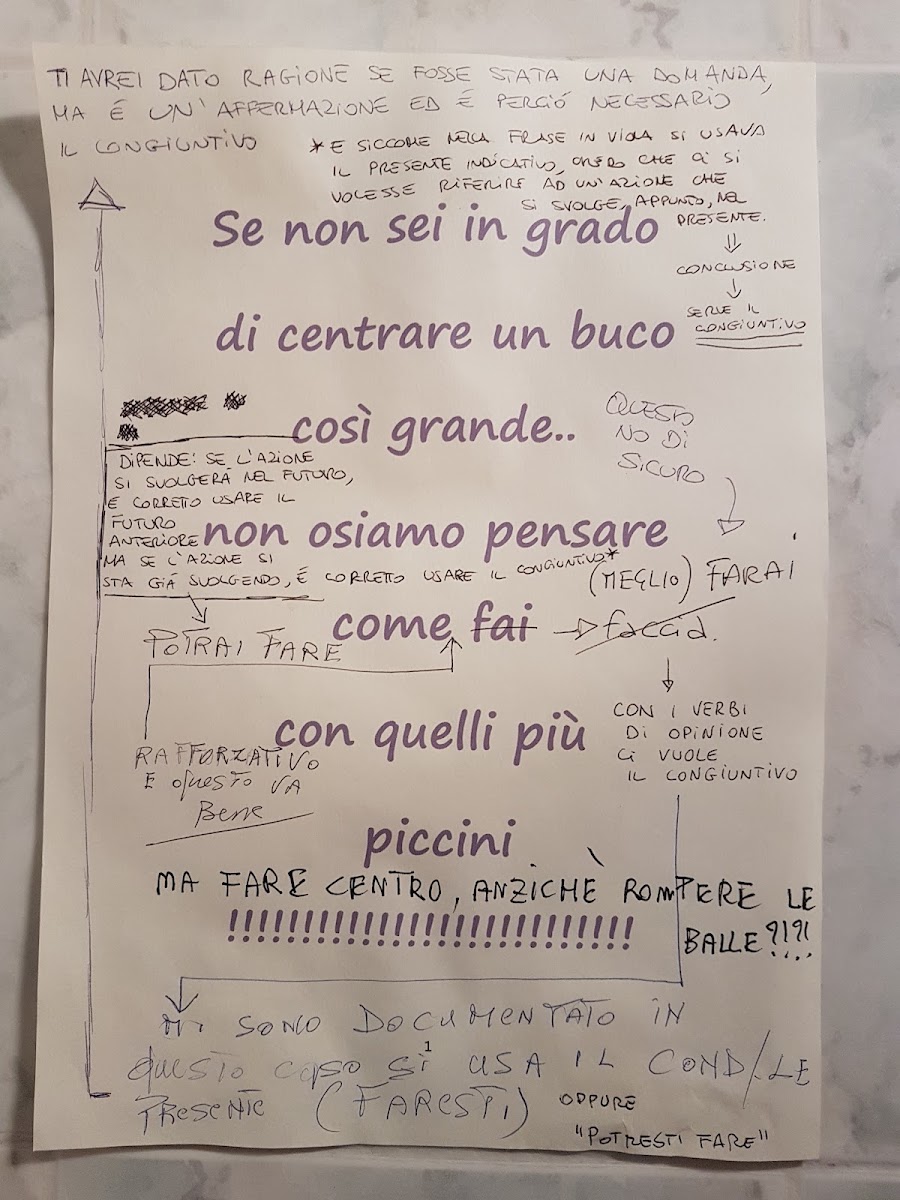 TI AVREI DATO RAGIONE SE FOSSE STATA UNA DOMANDA,
MA É UN'AFFERMAZIONE ED É PERCIÓ NECESSARIO
IL CONGIUNTIVO
* E SICCOME NELLA FRASE IN VIOLA SI USAVA
IL PRESENTE INDICATIVO, CHE CI SI
VOLESSE RIFERIRE AD UN'AZIONE CHE
SI SVOLGE, APPUNTO, NEL
PRESENTE.
⇓
CONCLUSIONE
↓
SERVE IL
CONGIUNTIVO
Se non sei in grado
di centrare un buco
così grande..
QUESTO
NO DI
SICURO
DIPENDE: SE L'AZIONE
SI SVOLGERÀ NEL FUTURO,
É CORRETTO USARE IL
FUTURO
ANTERIORE
MA SE L'AZIONE SI
STA GIÁ SVOLGENDO, É CORRETTO USARE IL CONGIUNTIVO*
non osiamo pensare
(MEGLIO) FARAI
come fai → faccia.
POTRAI FARE
RAFFORZATIVO
E QUESTO VA
Bene
con quelli più
CON I VERBI
DI OPINIONE
CI VUOLE
IL CONGIUNTIVO
piccini
MA FARE CENTRO, ANZICHÈ ROMPERE LE
BALLE?!?!
!!!!!!!!!!!!!!!!!!!!!!!!!!!
Mi SONO DOCUMENTATO IN
questo caso si USA IL COND/LE
PRESENTE (FARESTI) OPPURE
"POTRESTI FARE"